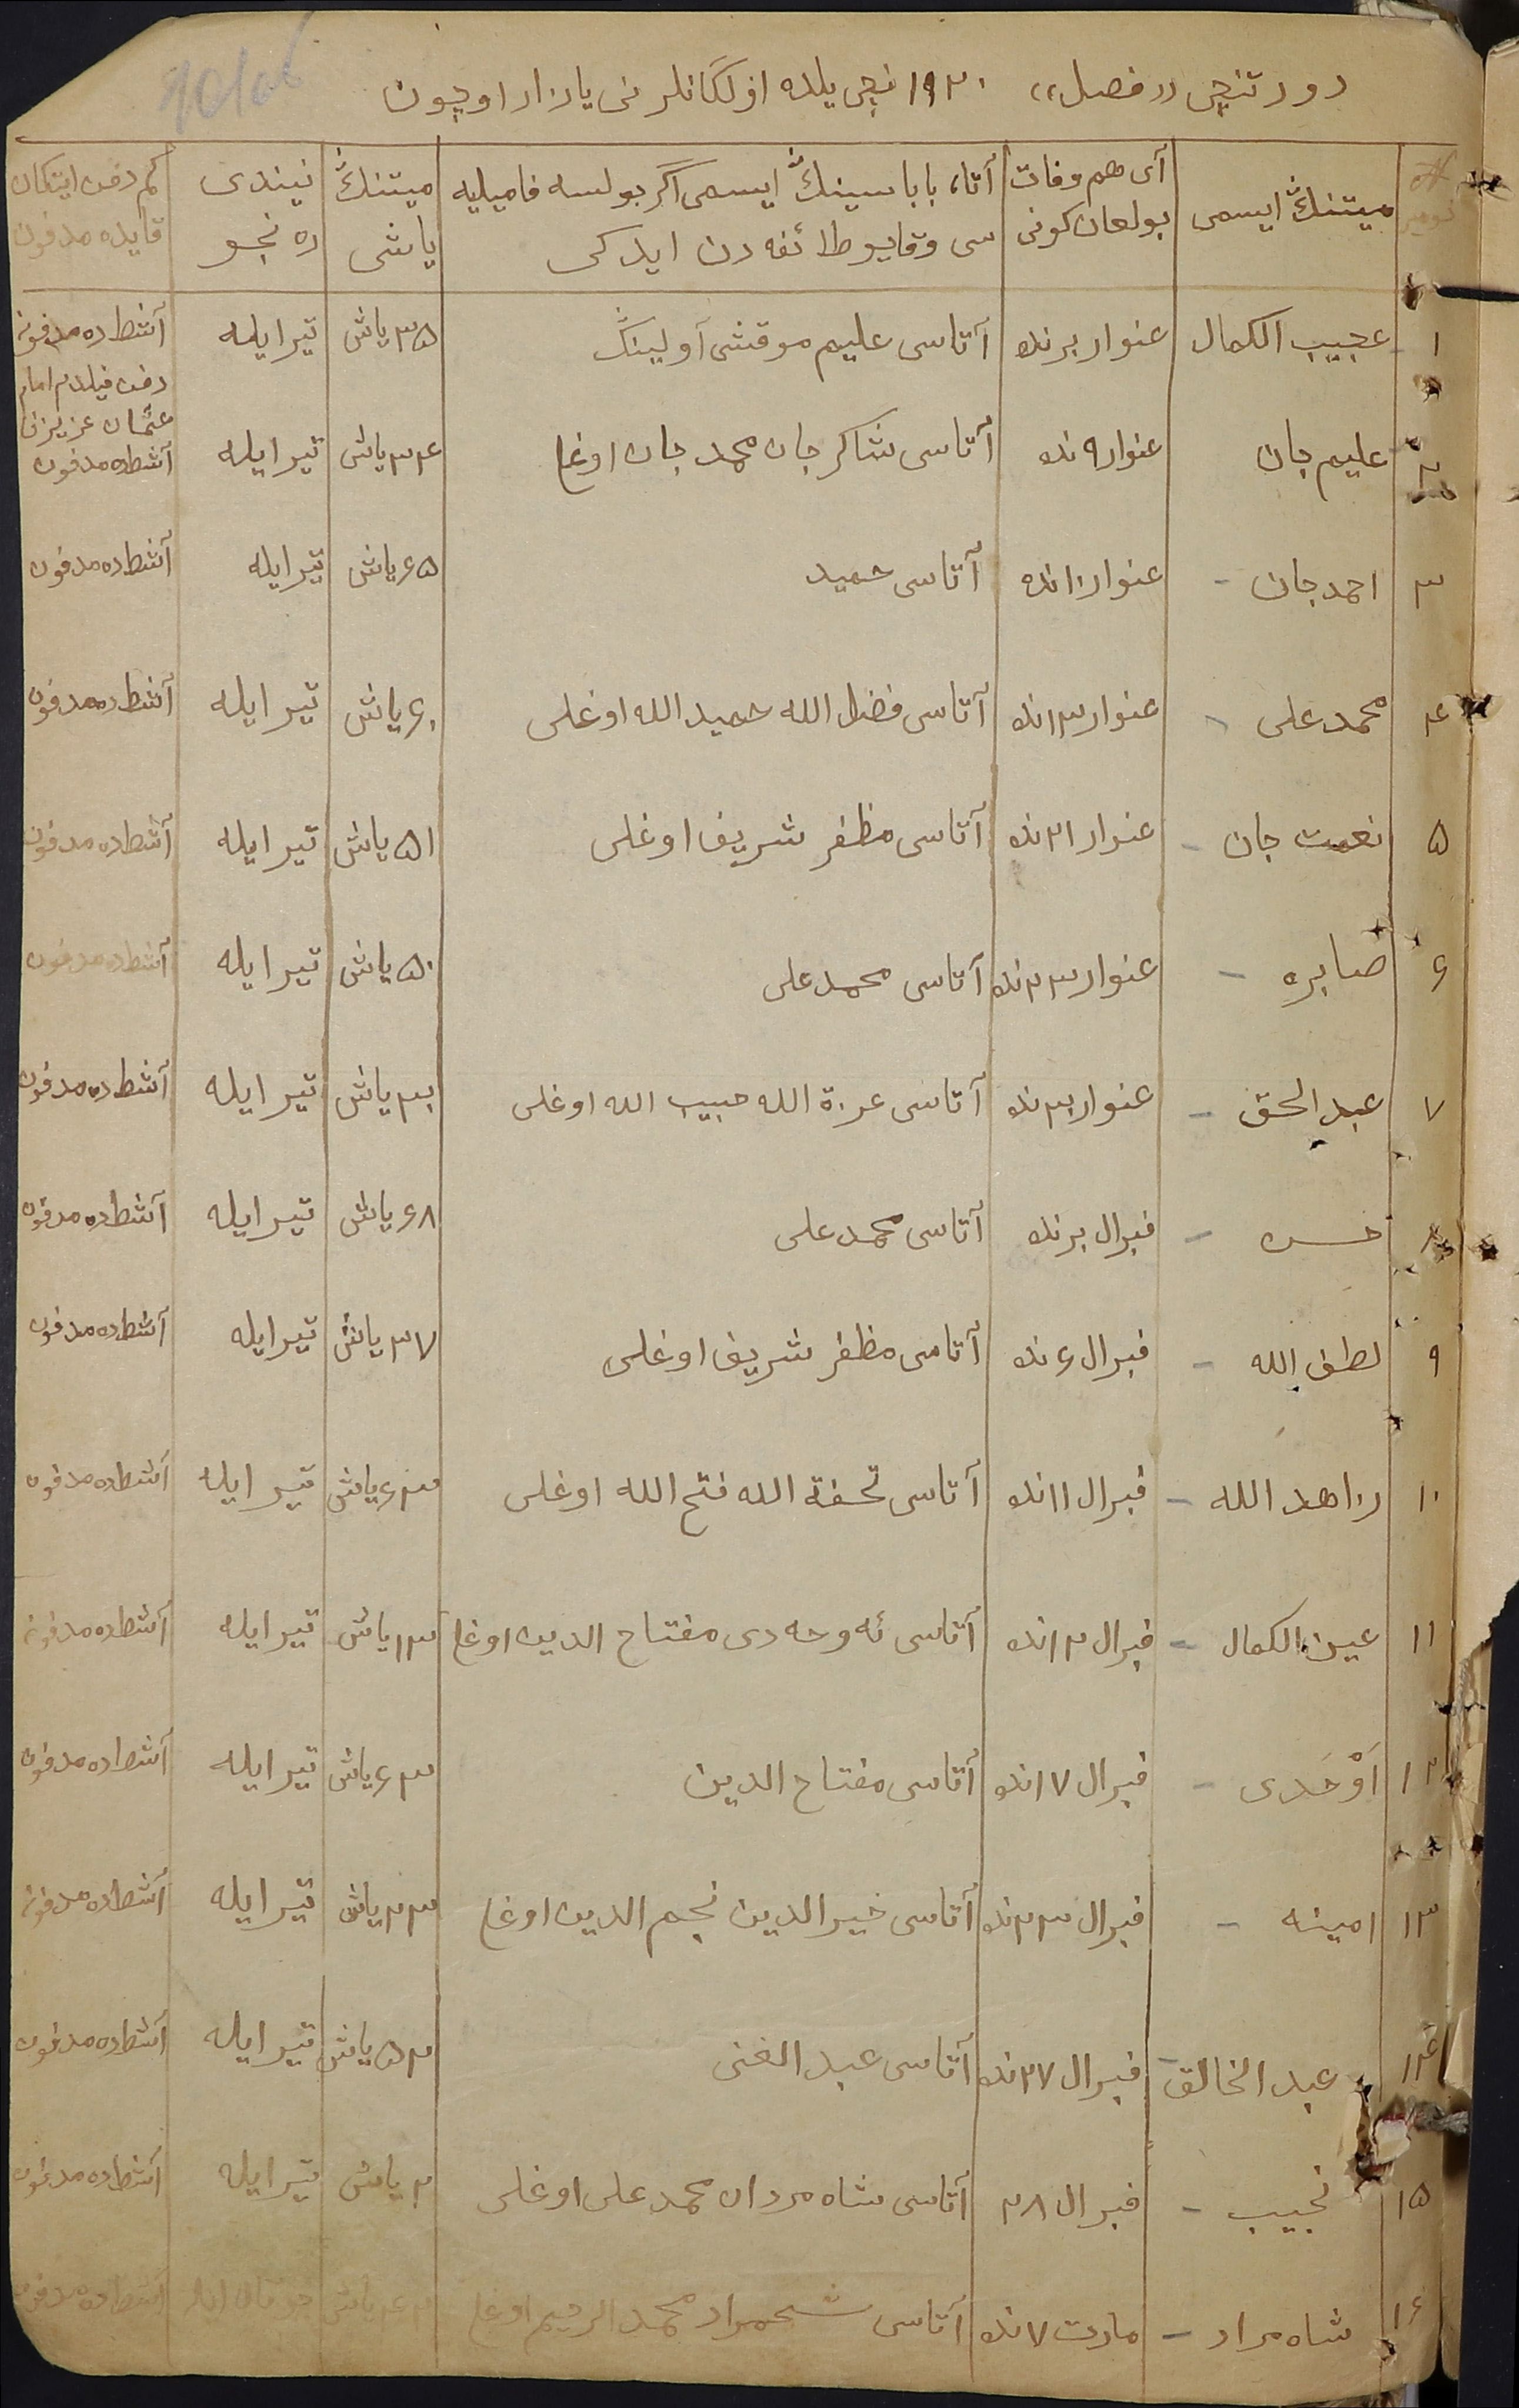 دورتنچی «فصل» ۱۹۲۰ نچی یلده اولگانلرنی یازار اوچون
نومیر
میتنڭ ایسمی
آی هم وفات
بولغان کونی
آتا، باباسینڭ ایسمی اگر بولسه فامیلیه
سی وقایو طائفه دن ایدکی
میتنڭ
یاشی
نیندی
ده نجو
کم دفن ایتکان
قایده مدفون
۱ عجیب الکمال عنوار برنده آتاسی علیم موقشی آولینڭ ۳۵ یاش تیر ایله آشطده مدفون
دفن قیلدم امام
عثمان عزیزف
۲ علیم جان عنوار ۹ نده آتاسی شاکرجان محمدجان اوغلی ۳۴ یاش تیر ایله آشطده مدفون
۳ احمدجان - عنوار ۱۰نده آتاسی حمید ۶۵ یاش تیر ایله آشطده مدفون
۴ محمدعلی - عنوار ۱۳نده آتاسی فضل الله حمیدالله اوغلی ۶۰ یاش تیر ایله آشطده مدفون
۵ نعمت جان - عنوار ۲۱ نده آتاسی مظفر شریف اوغلی ۵۱ یاش تیر ایله آشطده مدفون
۶ صابره - عنوار ۲۳ نده آتاسی محمدعلی ۵۰ یاش تیر ایله آشطده مدفون
۷ عبدالحق - عنوار نده آتاسی عزة الله حبیب الله اوغلی یاش تیر ایله آشطده مدفون
۸ - فبرال برنده آتاسی محمدعلی ۶۸ یاش تیر ایله آشطده مدفون
۹ لطف الله - فبرال ۶ نده آتاسی مظفر شریف اوغلی ۳۷ یاش تیر ایله آشطده مدفون
۱۰ زاهد الله - فبرال ۱۱نده آتاسی تحفة الله فتح الله اوغلی ۶۳ یاش تیر ایله آشطده مدفون
۱۱ عین الکمال - فبرال ۱۲نده آتاسی ئه وحه دی مفتاح الدین اوغلی ۱۳ یاش تیر ایله آشطده مدفون
۱۲ اَوْحَدی - فبرال ۱۷نده آتاسی مفتاح الدین ۶۳ یاش تیر ایله آشطده مدفون
۱۳ امینه - فبرال ۲۳نده آتاسی خیرالدین نجم الدین اوغلی ۲۳ یاش تیر ایله آشطده مدفون
۱۴ عبد الخالق - فبرال ۲۷نده آتاسی عبد الغنی ۵۲ یاش تیر ایله آشطده مدفون
۱۵ نجیب - فبرال ۲۸ آتاسی شاه مردان محمدعلی اوغلی ۲ یاش تیر ایله آشطده مدفون
۱۶ شاه مراد - مارت ۷نده آتاسی محمد الرحیم اوغلی یاش آشطده مدفون